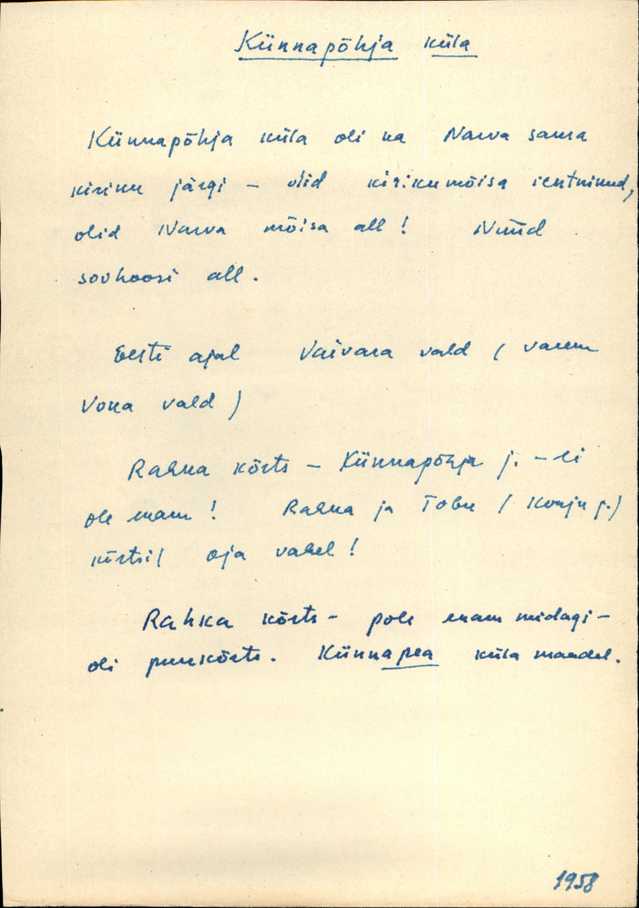 Künnapõhja küla
Künnapõhja küla oli ka Narva sama
kiriku järgi – olid kirikumõisa rentnikud,
olid Narva mõisa all! Nüüd
sovhoosi all.
Eesti ajal Vaivara vald ( varem
Voka vald )
Rahka kõrts – Künnapõhja j. – ei
ole enam! Rahka ja Tobu ( Konju j.)
kõrtsil oja vahel!
Rahka kõrts – pole enam midagi –
oli puukõrts. Künnapea küla maadel.
1958